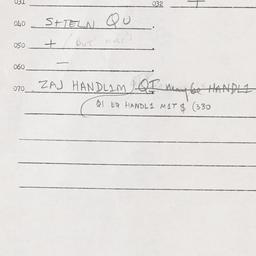 031 032 +
040 SHTELN QU
050 + /
060 —
070 ZAJ HANDL1M) QI maybe HANDL1
QI ER HANDL1 MIT $ (330